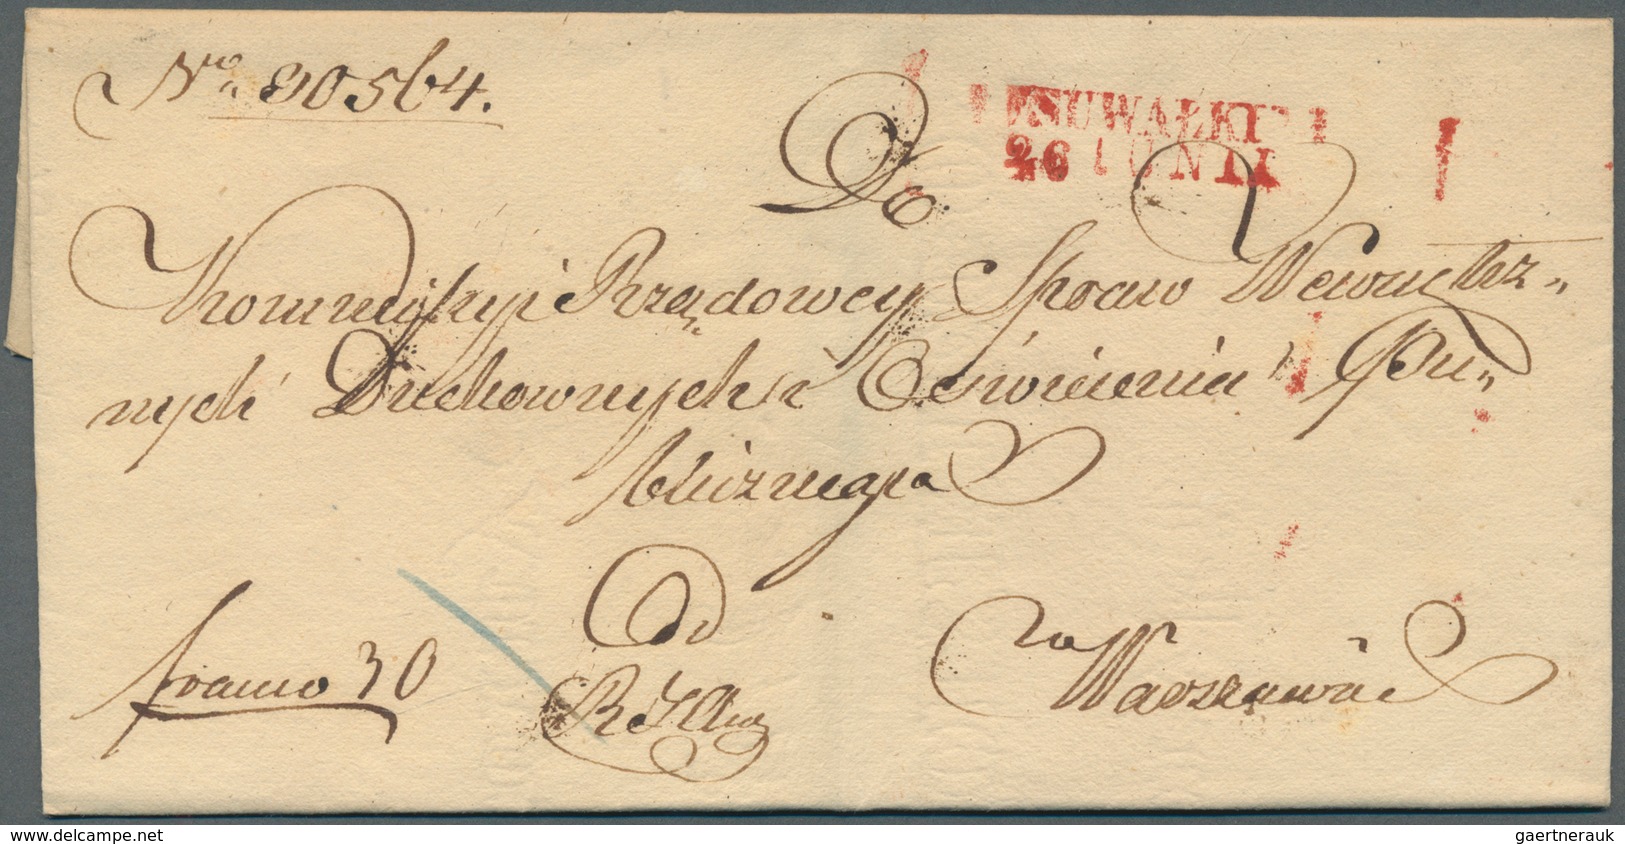 Nro 80564.
SUWAŁKI
26 IUNII
Do
Kommissyi Rządowey Spraw Wewnętrz„
nych Duchownych i Oświecenia Pu„
blicznego
franco 30
Od
w Warszawie
www.delcampe.net
gaertnerauk